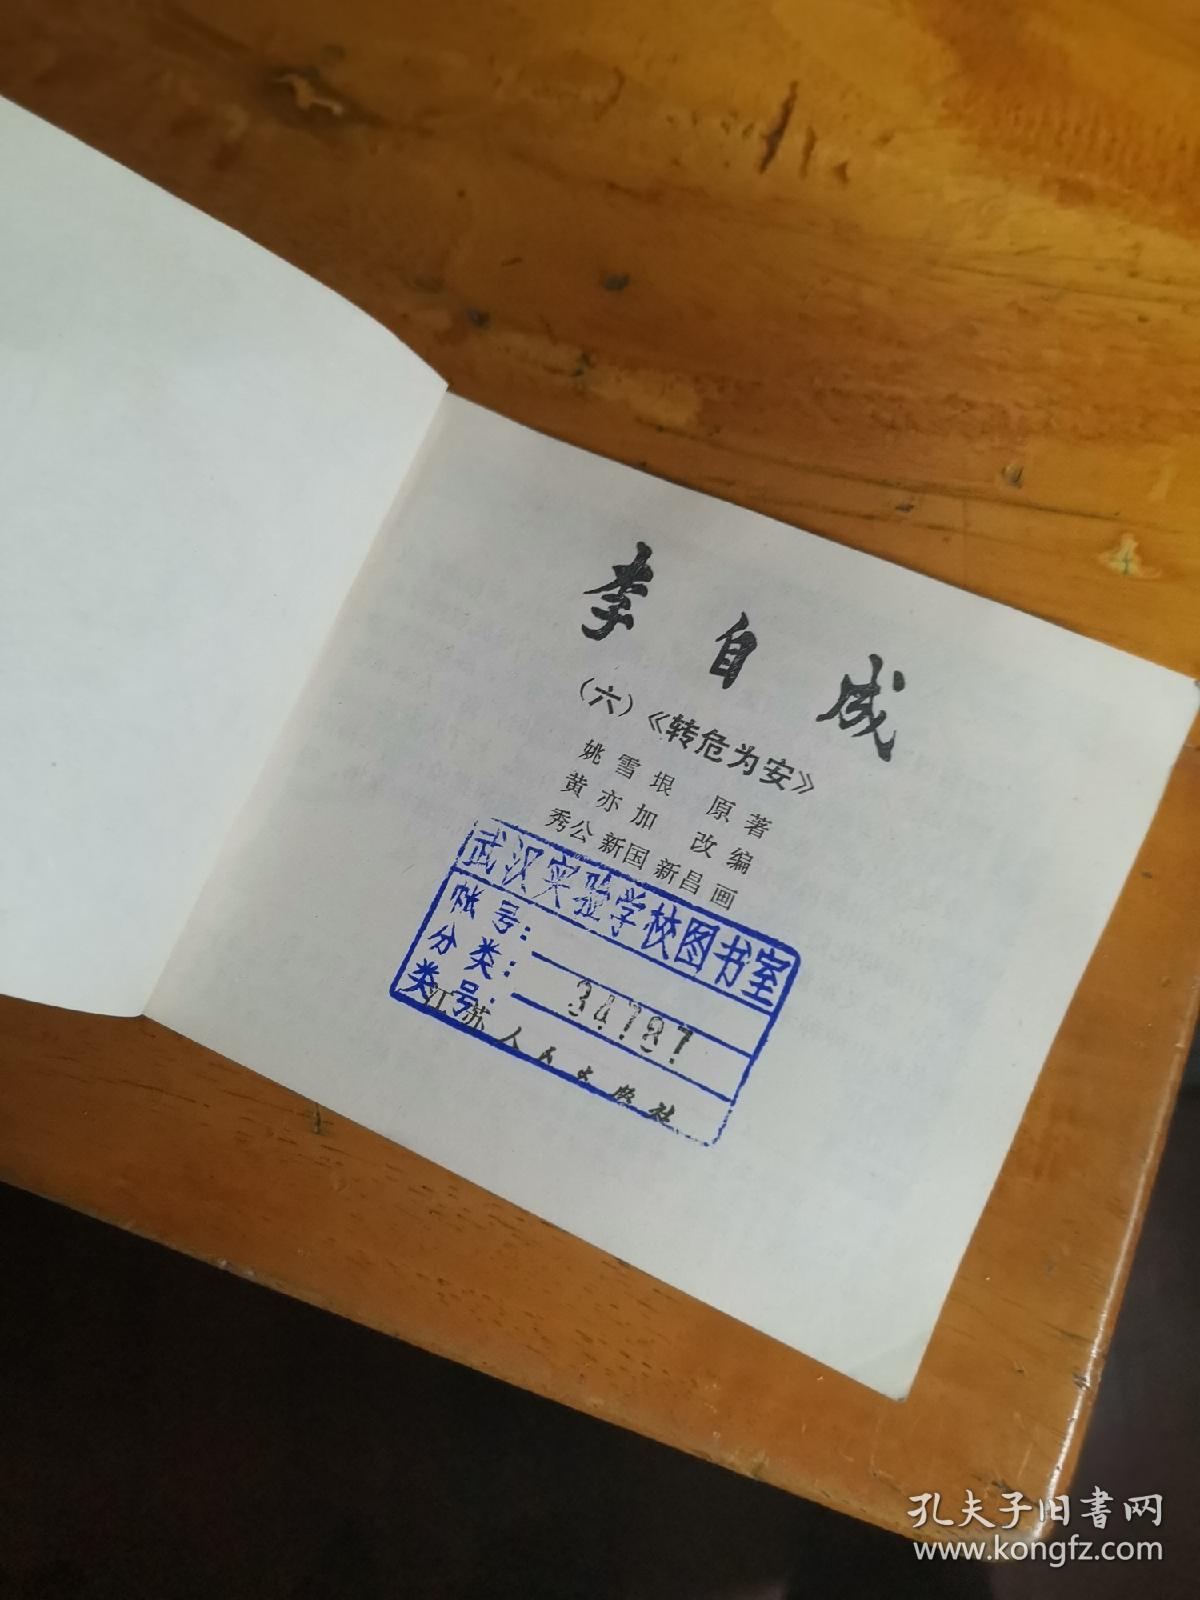 李自成
(六)《转危为安》
姚雪垠 原著
黄亦加 改编
秀公 新国 新昌 画
武汉实验学校图书室
帐号:
分类: 34787
类号:
江苏人民出版社
孔夫子旧書网
www.kongfz.com